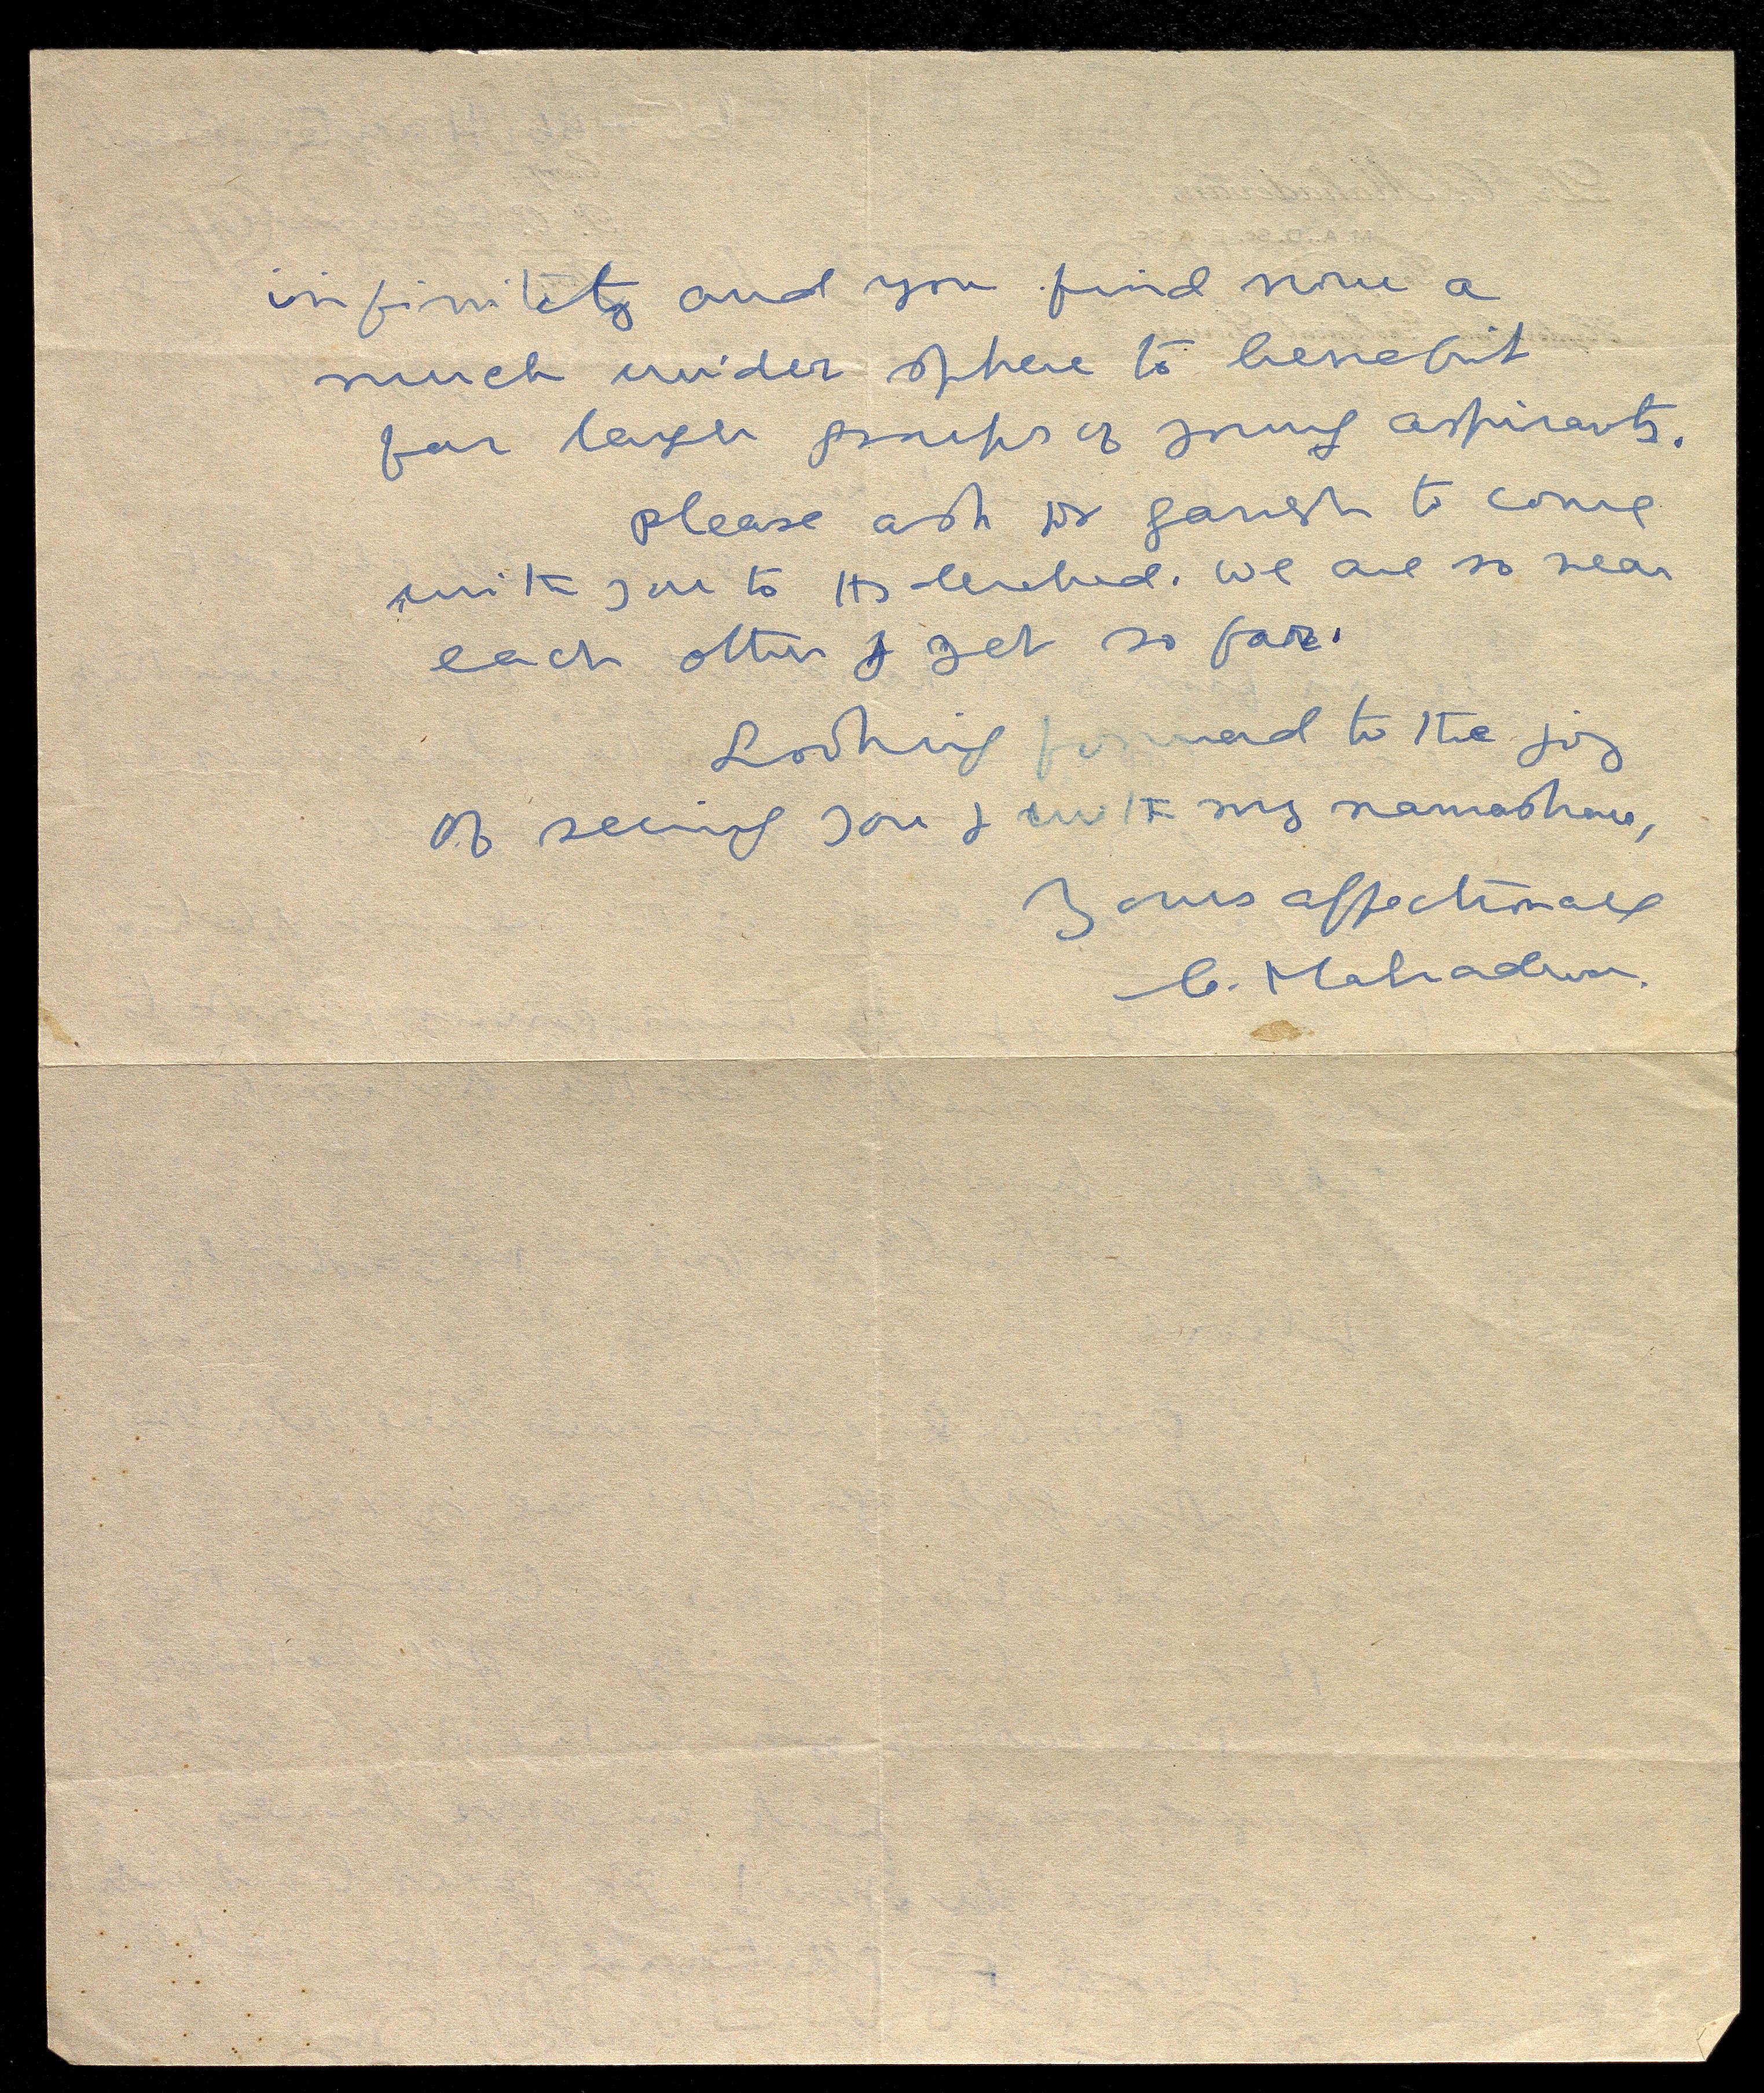 infinity and you find now a
much wider sphere to benefit
far larger groups of young aspirants.
please ask Dr Ganesh to come
with you to Hyderabad. We are so near
each other & yet so far.
Looking forward to the joy
of seeing you & with my namaskar,
Yours affectionate
C. Mahadevan.